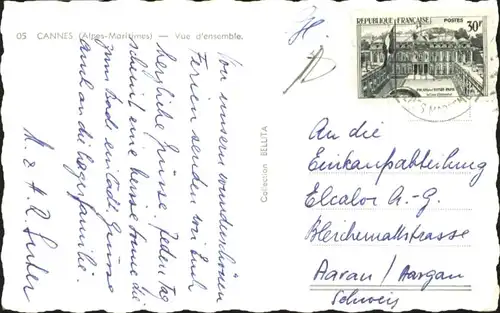 05 CANNES (Alpes-Maritimes) — Vue d'ensemble.
Von unsern wunderschönen
Ferien senden wir Euch
herzliche Grüsse. Jeden Tag
scheint eine heisse Sonne die
zum Bade einladet. Grüsse
auch an die Lagerfamilie.
M. & H. R. Suter
Collection BELLITA
RÉPUBLIQUE FRANÇAISE
POSTES
30F
An die
Einkaufsabteilung
Elcalor A.-G.
Bleichemattstrasse
Aarau / Aargau
Schweiz